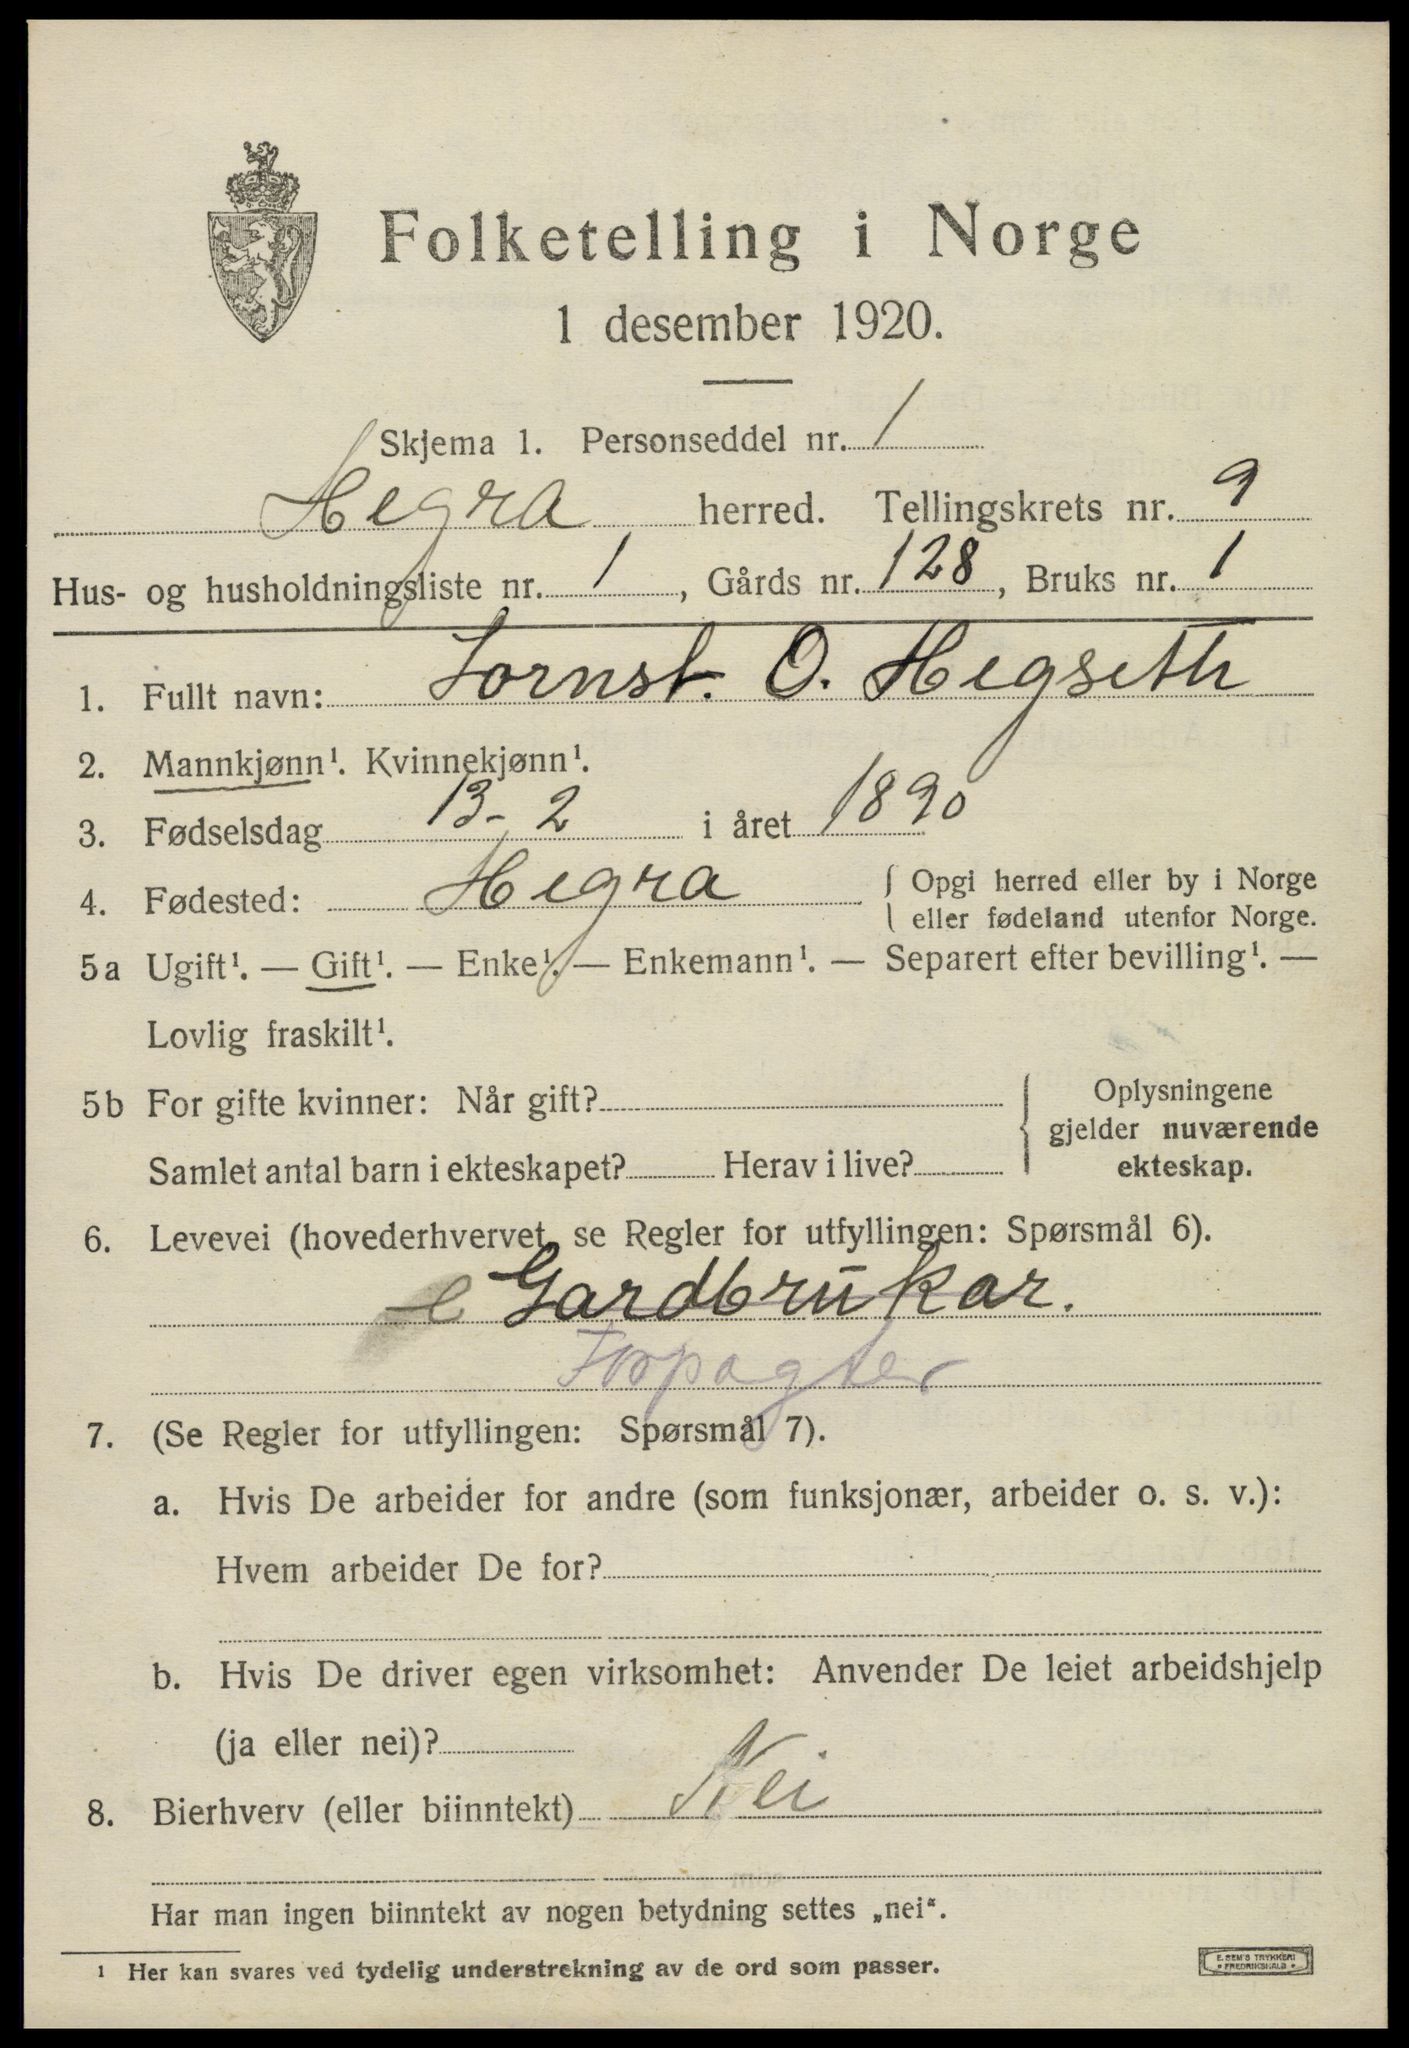 Folketelling i Norge
1 desember 1920.
Skjema 1. Personseddel nr. 1
Hegra herred. Tellingskrets nr. 9
Hus- og husholdningsliste nr. 1, Gårds nr. 128, Bruks nr. 1
1. Fullt navn: Tornst. O. Hegseth
2. Mannkjønn¹. Kvinnekjønn¹.
3. Fødselsdag 13-2 i året 1890
4. Fødested: Hegra { Opgi herred eller by i Norge
eller fødeland utenfor Norge.
5a Ugift¹. — Gift¹. — Enke¹. — Enkemann¹. — Separert efter bevilling¹. —
Lovlig fraskilt¹.
5b For gifte kvinner: Når gift? { Oplysningene
gjelder nuværende
Samlet antal barn i ekteskapet? Herav i live? ekteskap.
6. Levevei (hovederhvervet, se Regler for utfyllingen: Spørsmål 6).
e Gardbrukar.
Forpagter
7. (Se Regler for utfyllingen: Spørsmål 7).
a. Hvis De arbeider for andre (som funksjonær, arbeider o. s. v.):
Hvem arbeider De for?
b. Hvis De driver egen virksomhet: Anvender De leiet arbeidshjelp
(ja eller nei)?
8. Bierhverv (eller biinntekt) Nei
Har man ingen biinntekt av nogen betydning settes „nei“.
¹ Her kan svares ved tydelig understrekning av de ord som passer.
E. SEM'S TRYKKERI
• FREDRIKSHALD •